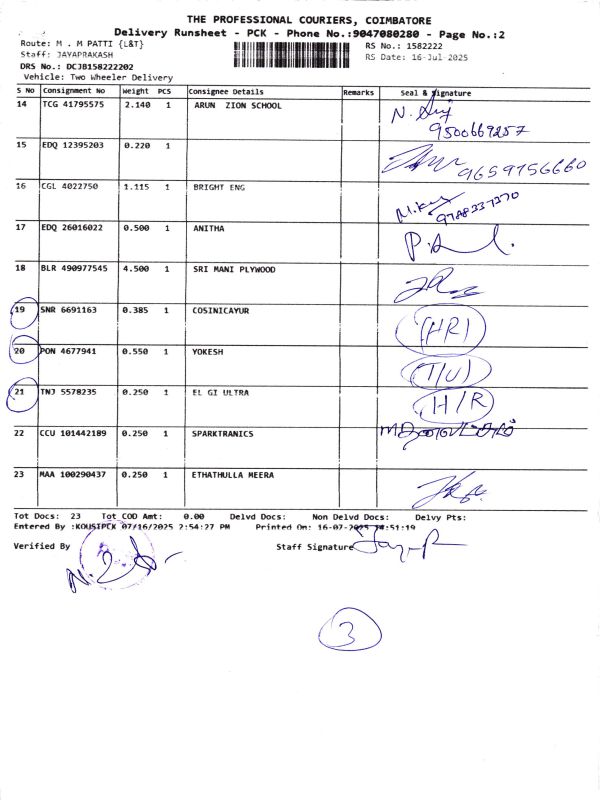 THE PROFESSIONAL COURIERS, COIMBATORE
Delivery Runsheet - PCK - Phone No.:9047080280 - Page No.:2
Route: M . M PATTI {L&T} RS No.: 1582222
Staff: JAYAPRAKASH RS Date: 16-Jul-2025
DRS No.: DCJB158222202
Vehicle: Two Wheeler Delivery
S No Consignment No Weight PCS Consignee Details Remarks Seal & Signature
14 TCG 41795575 2.140 1 ARUN ZION SCHOOL
9500669257
15 EDQ 12395203 0.220 1
9659756660
16 CGL 4022750 1.115 1 BRIGHT ENG
9788337370
17 EDQ 26016022 0.500 1 ANITHA
18 BLR 490977545 4.500 1 SRI MANI PLYWOOD
19 SNR 6691163 0.385 1 COSINICAYUR (HR)
20 PON 4677941 0.550 1 YOKESH (T/U)
21 TNJ 5578235 0.250 1 EL GI ULTRA H/R
22 CCU 101442189 0.250 1 SPARKTRANICS
23 MAA 100290437 0.250 1 ETHATHULLA MEERA
Tot Docs: 23 Tot COD Amt: 0.00 Delvd Docs: Non Delvd Docs: Delvy Pts:
Entered By :KOUSIPCK 07/16/2025 2:54:27 PM Printed On: 16-07-2025 14:51:19
Verified By Staff Signature
3